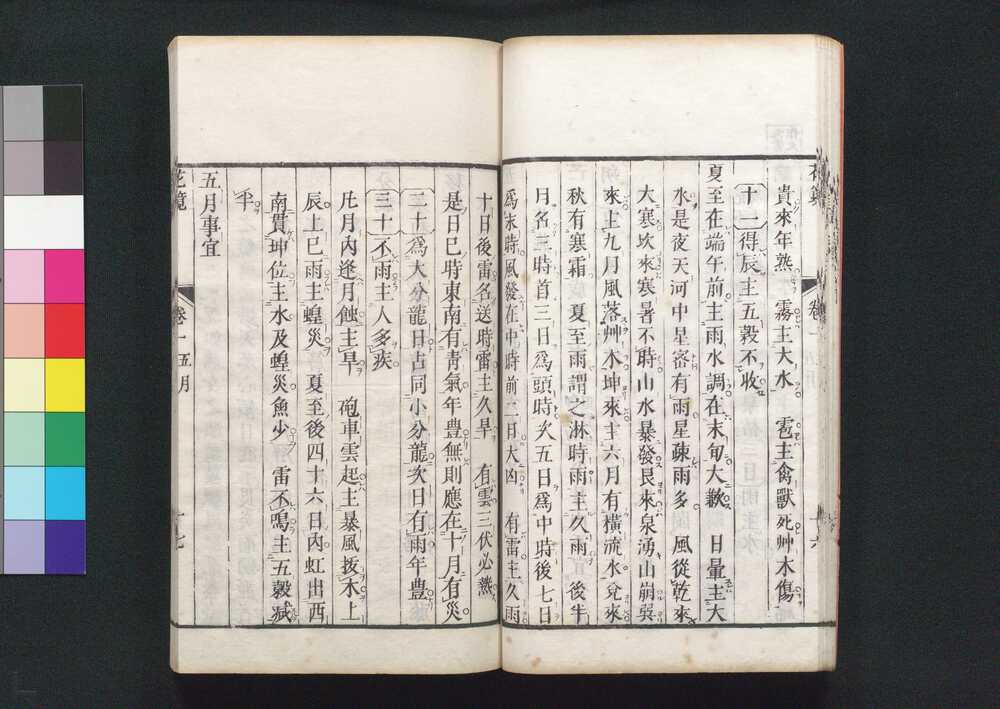 貴來年熟　霧主大水　雹主禽獸死艸木傷
十一得辰主五穀不收
夏至在端午前主雨水調在末旬大歉　日暈主大
水是夜天河中星密有雨星疎雨多　風從乾來
大寒坎來寒暑不時山水暴發艮來泉湧山崩巽
來上九月風落艸木坤來主六月有橫流水兌來
秋有寒霜　夏至雨謂之淋時雨主久雨　後半
月名三時首三日爲頭時次五日爲中時後七日
爲末時風發在中時前二日大凶　有雷主久雨
十日後雷名送時雷主久旱　有雲三伏必熱
是日巳時東南有青氣年豊無則應在十月有災
二十爲大分龍日占同小分龍次日有雨年豊
三十不雨主人多疾
凡月內逢月蝕主旱　砲車雲起主暴風拔木上
辰上巳雨主蝗災　夏至後四十六日內虹出西
南貫坤位主水及蝗災魚少　雷不鳴主五穀減
半
五月事宜
花鏡　卷一五月　十七